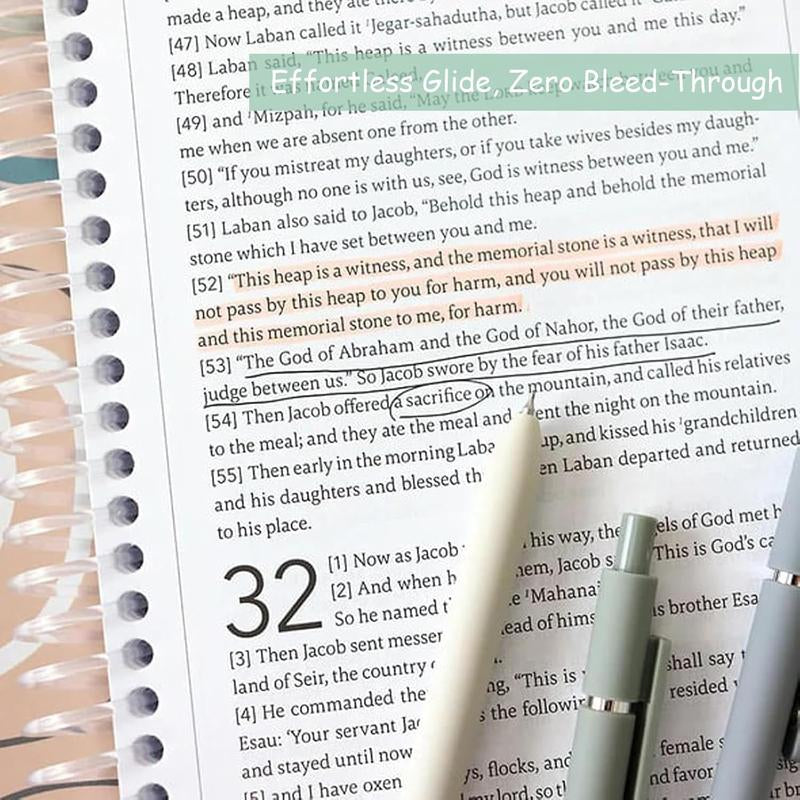 made a heap, and they ate there
[47] Now Laban called it ˡJegar-sahadutha, but Jacob called it
[48] Laban said, "This heap is a witness between you and me this day."
Effortless Glide, Zero Bleed-Through
Therefore it was named
[49] and ˡMizpah, for he said, "May the LORD keep and
me when we are absent one from the other.
[50] "If you mistreat my daughters, or if you take wives besides my daugh-
ters, although no one is with us, see, God is witness between you and me."
[51] Laban also said to Jacob, "Behold this heap and behold the memorial
stone which I have set between you and me.
[52] "This heap is a witness, and the memorial stone is a witness, that I will
not pass by this heap to you for harm, and you will not pass by this heap
and this memorial stone to me, for harm.
[53] "The God of Abraham and the God of Nahor, the God of their father,
judge between us." So Jacob swore by the fear of his father Isaac.
[54] Then Jacob offered a sacrifice on the mountain, and called his relatives
to the meal; and they ate the meal and ent the night on the mountain.
[55] Then early in the morning Laba up, and kissed his ˡgrandchildren
and his daughters and blessed th en Laban departed and returned
to his place.
32
[1] Now as Jacob his way, the els of God met h
[2] And when h hem, Jacob s This is God's ca
So he named t e ˡMahanai
[3] Then Jacob sent messer ead of hims is brother Esa
land of Seir, the country
[4] He commanded the ng, "This is shall say t
Esau: 'Your servant Jac s the followin resided
and stayed until now
[5] and I have oxen ys, flocks, and female s
my lord, so t nd favor sig